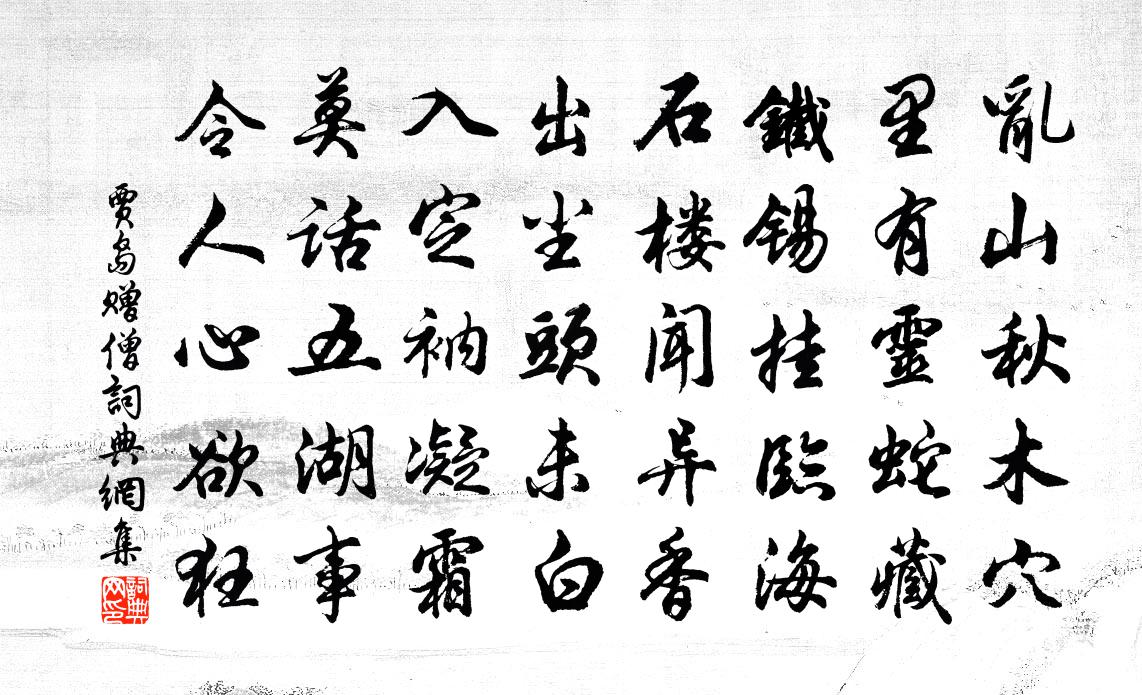 亂山秋木穴
里有靈蛇藏
鐵錫挂臨海
石楼聞异香
出尘頭未白
入定衲凝霜
莫話五湖事
令人心欲狂
賈島赠僧詞典網集
詞典网印